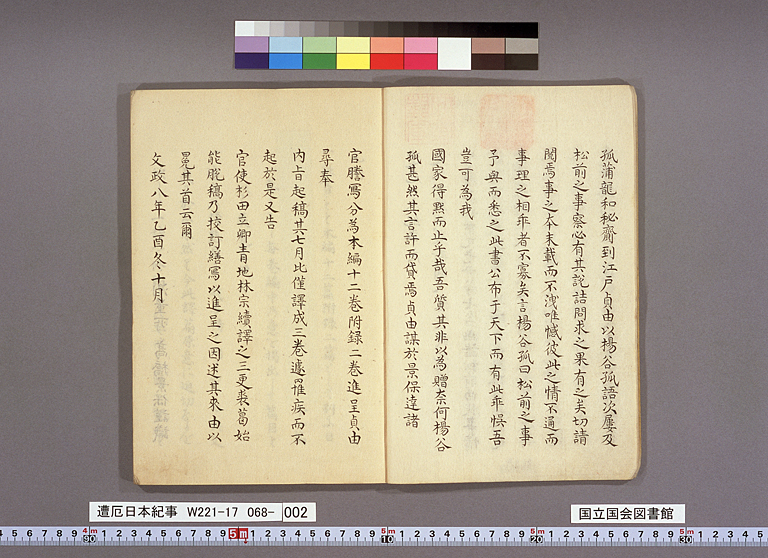 孤蒲龍和秘齋到江戸貞由以揚谷孤語次屢及
松前之事察必有其説詰問求之果有之矣切請
閲焉事之本末載而不洩唯憾彼此之情不通而
事理之相乖者不寡矣言揚谷孤曰松前之事
予與而悉之此書公布于天下而有此乖悮吾
豈可為我
國家得黙而止乎哉吾質其非以為贈奈何揚谷
孤甚然其言許而貸焉貞由謀於景保達諸
官謄寫分為本編十二巻附録二巻進呈貞由
尋奉
内旨起稿其七月比僅譯成三巻遽罹疾而不
起於是又告
官使杉田立卿青地林宗續譯之三更裘葛始
能脱稿乃挍訂繕寫以進呈之因述其來由以
冕其首云爾
文政八年乙酉冬十月
遭厄日本紀事 W221-17 068- 002
国立国会図書館